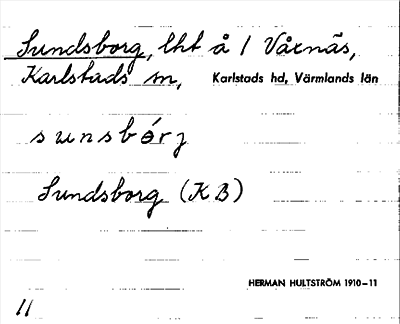 Sundsborg, lht å 1 Våxnäs,
Karlstads sn, Karlstads hd, Värmlands län
sunsbórj
Sundsborg (KB)
HERMAN HULTSTRÖM 1910-11
11